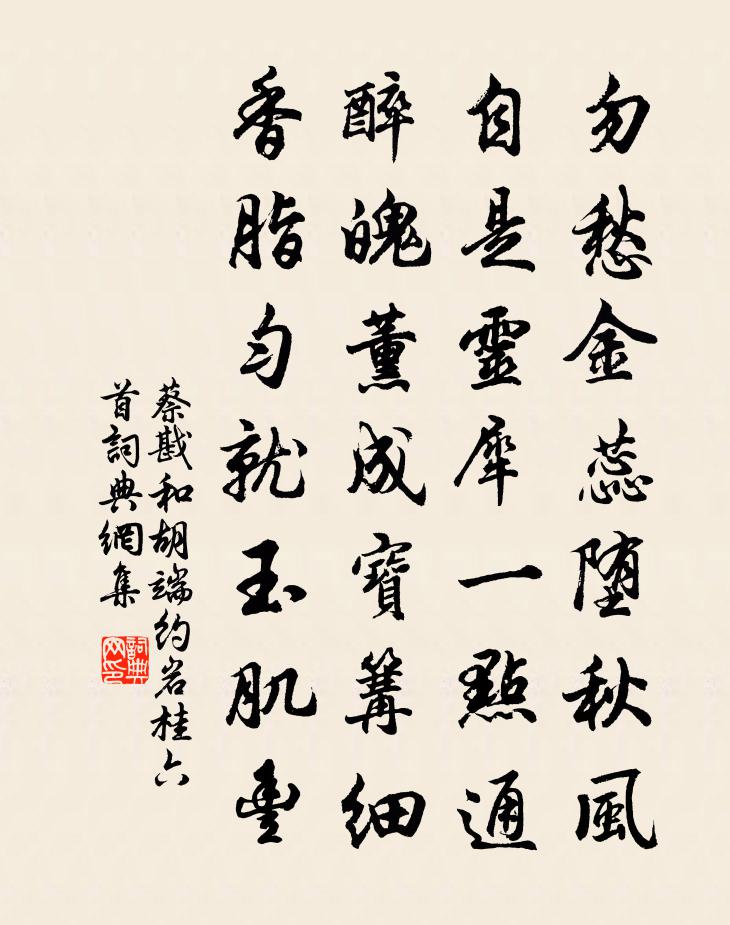 勿愁金蕊堕秋風
自是靈犀一點通
醉魄薰成寶篝細
香脂匀就玉肌豐
蔡戡和胡端約岩桂六
首詞典網集
詞典
网印